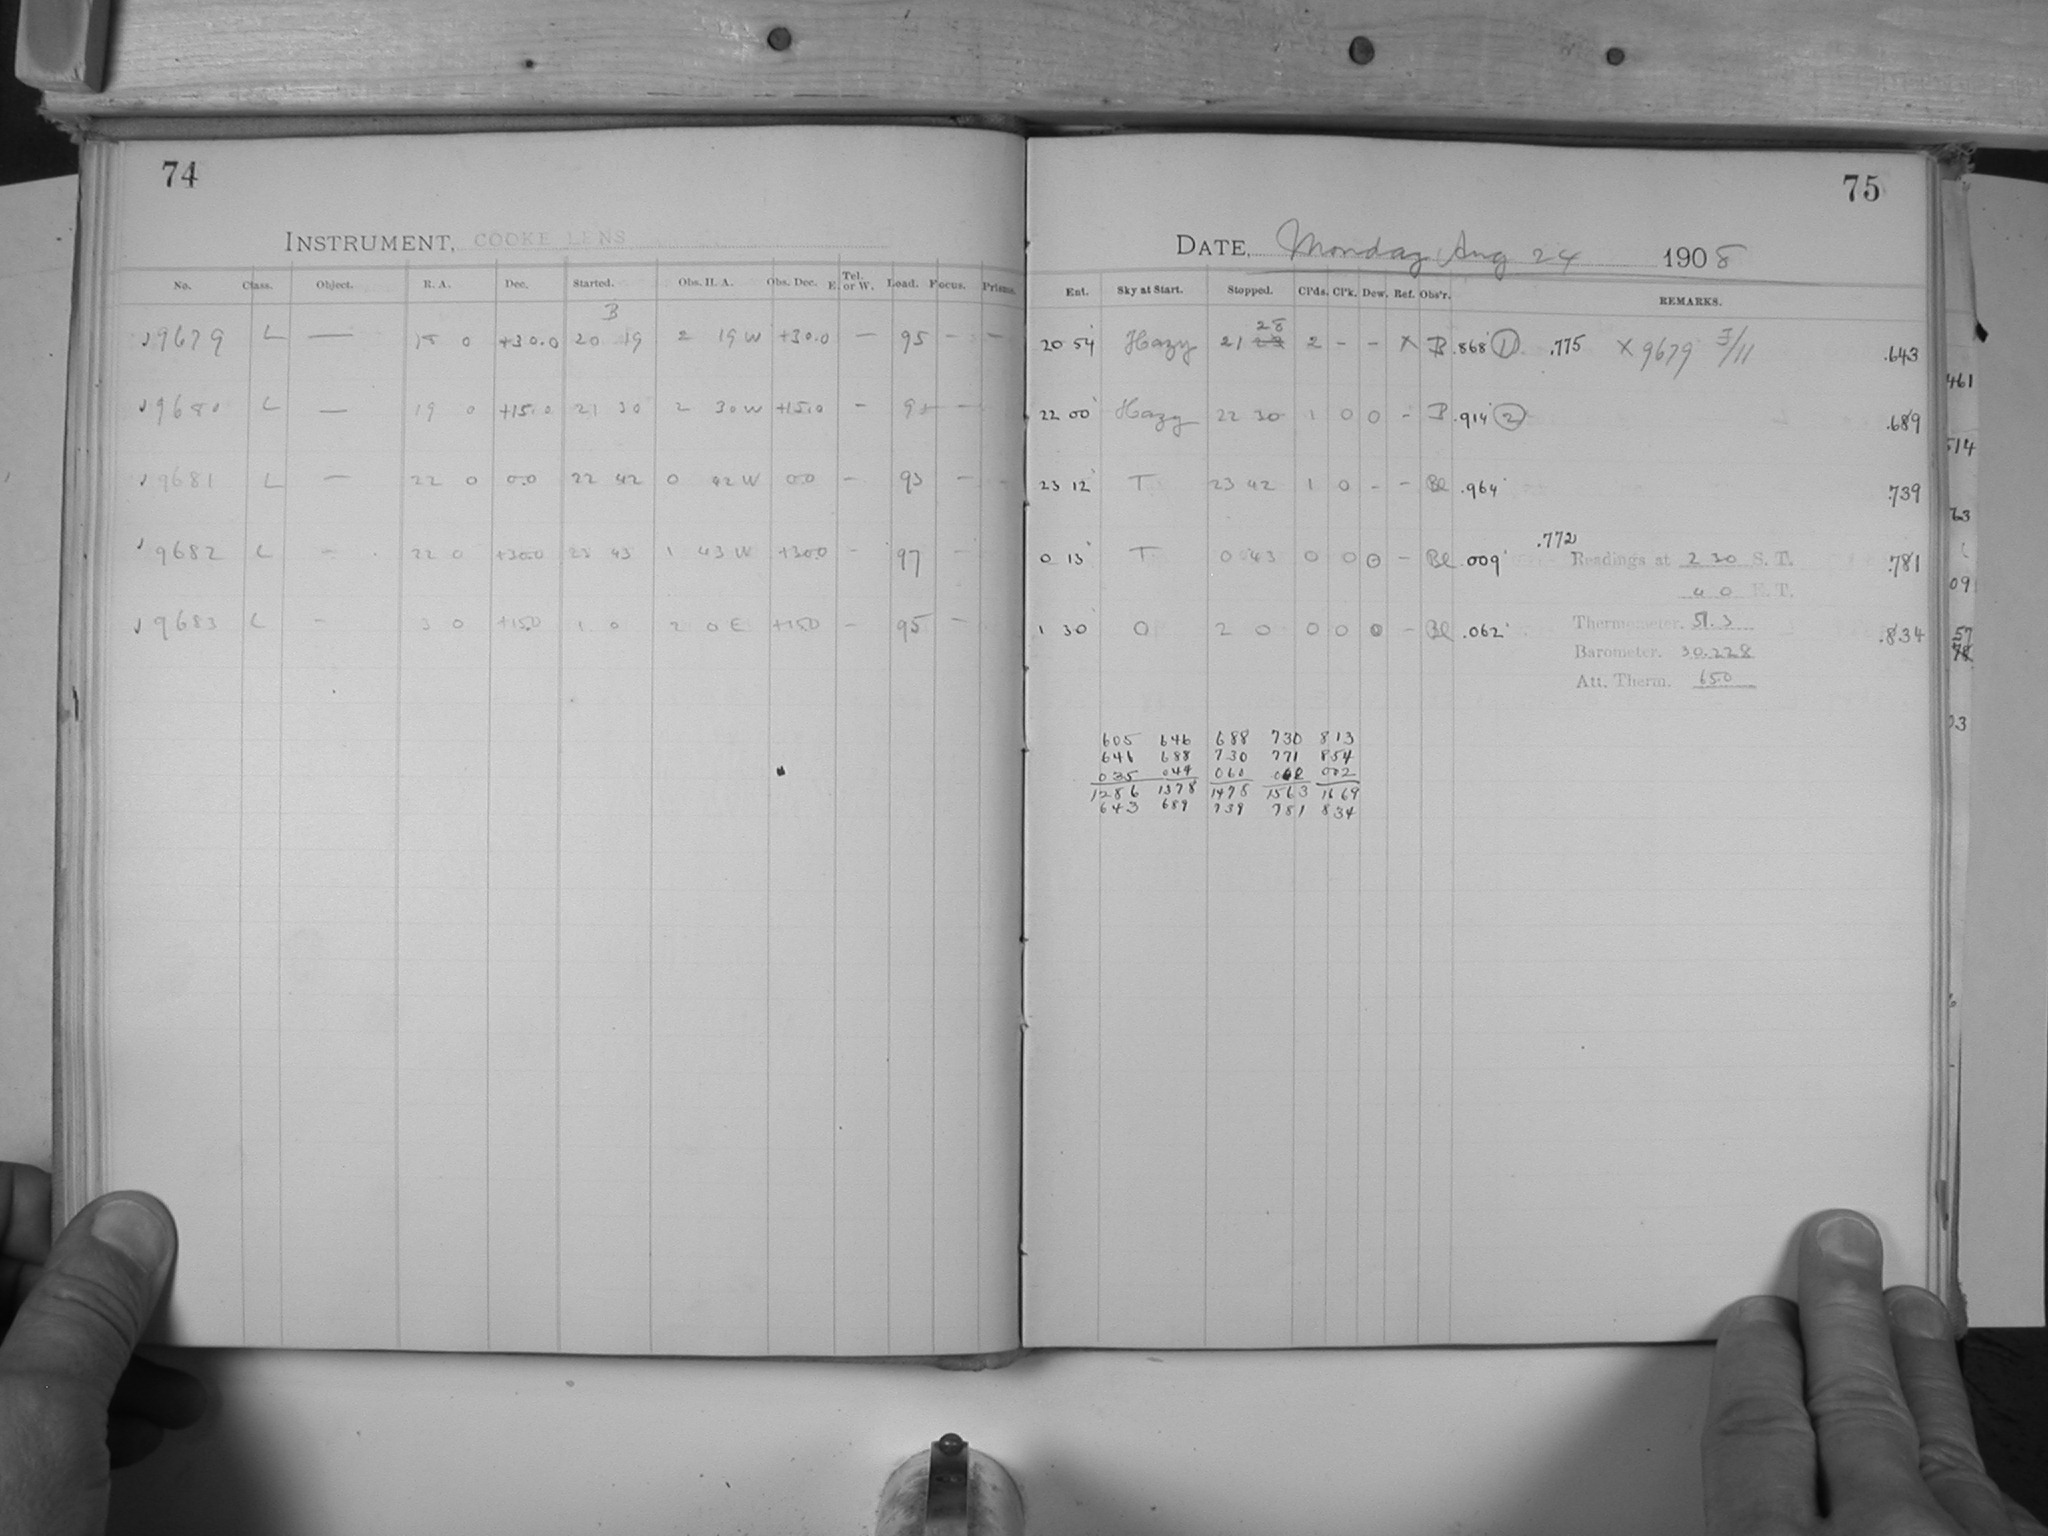 74
INSTRUMENT, COOKE LENS
No. Class. Object. R. A. Dec. Started. Obs. H. A. Obs. Dec. Tel. E. or W. Load. Focus. Prisms.
B
9679 L — +30.0 20 19 2 19 W +30.0 — 95 - -
9680 L — 19 0 +15.0 21 30 2 30 W +15.0 — -
9681 L — 22 0 0.0 22 42 0 42 W 0.0 — 93 - -
9682 L - 22 0 +30.0 23 43 1 43 W +30.0 - 97 -
9683 L - 3 0 +15.0 1 0 2 0 E +15.0 - 95 -
75
DATE, Monday Aug 24 1908
Ent. Sky at Start. Stopped. Cl'ds. Cl'k. Dew. Ref. Obs'r. REMARKS.
28
20 54 Hazy 21 2 - - X B .868 1 .775 X 9679 3/11 .643
22 00 Hazy 22 30 1 0 0 - B .914 2 .689
23 12 T 23 42 1 0 - - Bl .964 .739
.772
0 13 T 0 43 0 0 0 - Bl .009 Readings at 2 30 S. T. .781
4 0 E. T.
1 30 0 2 0 0 0 0 - Bl .062 Thermometer. 51.3 .834
Barometer. 30.228
Att. Therm. 65.0
605 646 688 730 813
641 688 730 771 854
035 044 060 062 002
1286 1378 1478 1563 1669
643 689 739 781 834
461
514
63
09
57
78
03